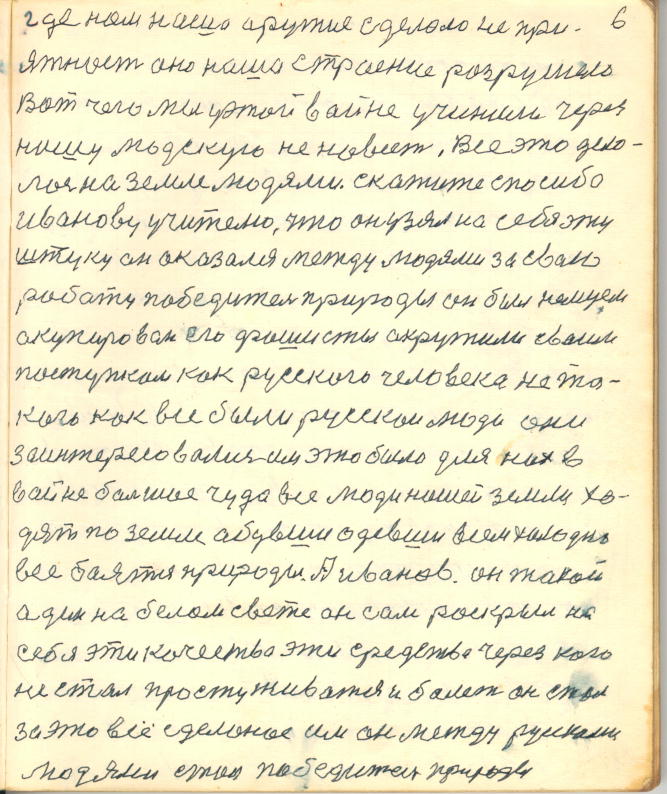 где нам наша аружие сделало не при- 6
ятност оно наша страение розрушело
Вот чего мы у этой вайне учинили через
нашу людскую не новест, Все это дело-
лоя на земле людями. скажите спосибо
Иванову учителю, что он узял на себя эту
штуку он оказался между людями за сваю
роботу победителя природы он был немцем
окупирован его фошисты акружили сваим
поступком как русского человека не то-
кого как все были русскои люди они
заинтересовались им это было для них в
вайне балшое чуда все люди нашей земли хо-
дят по земле абувши одевши всем холодно
все баятся природы. А иванов. он такой
адин на белом свете он сам роскрыл на
себя эти качества эти средства через кого
не стал простуживатся и болет он стал
за это всё сделоное им он между русскими
людями стал победителя природы